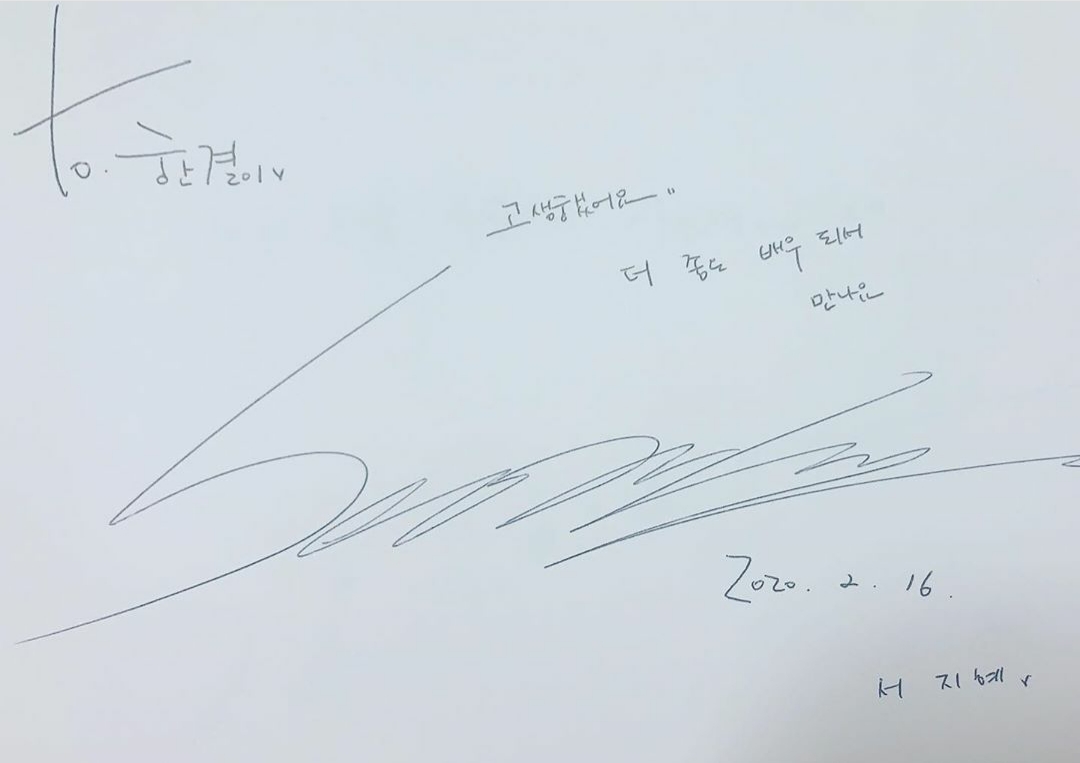 to. 한결이v
고생했어요"
더 좋은 배우 되서
만나요
2020. 2. 16.
서지혜v